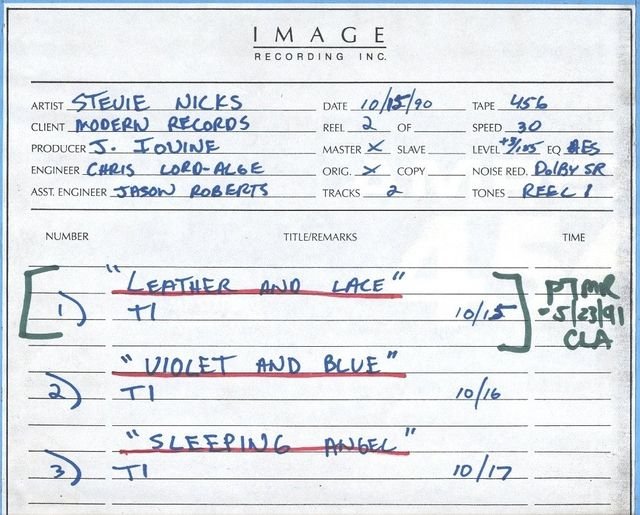 IMAGE
RECORDING INC.
ARTIST STEVIE NICKS DATE 10/15/90 TAPE 456
CLIENT MODERN RECORDS REEL 2 OF SPEED 30
PRODUCER J. IOVINE MASTER X SLAVE LEVEL +3/185 EQ AES
ENGINEER CHRIS LORD-ALGE ORIG. X COPY NOISE RED. DOLBY SR
ASST. ENGINEER JASON ROBERTS TRACKS 2 TONES REEL 1
NUMBER TITLE/REMARKS TIME
"LEATHER AND LACE"
1) T1 10/15
5/23/91
CLA
"VIOLET AND BLUE"
2) T1 10/16
"SLEEPING ANGEL"
3) T1 10/17